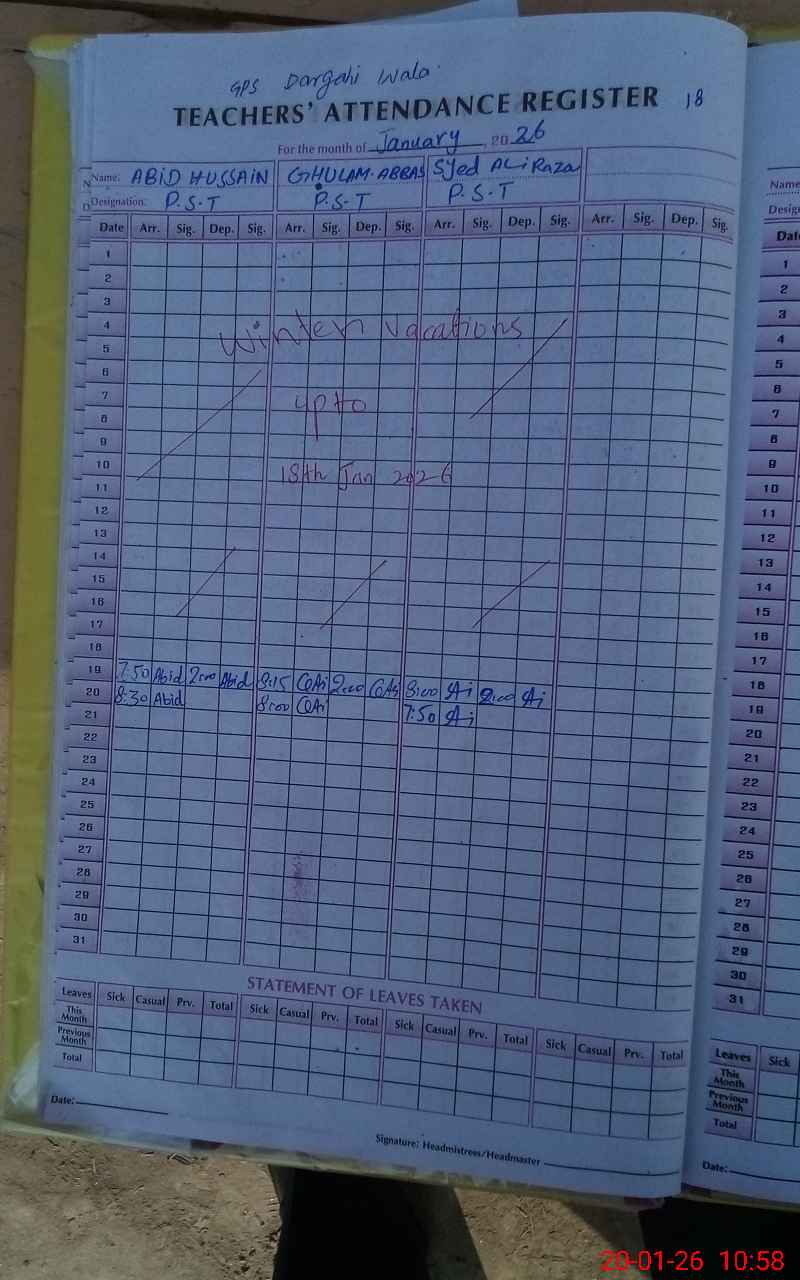 GPS Dargahi Wala
TEACHERS' ATTENDANCE REGISTER 18
For the month of January, 2026
Name: ABID HUSSAIN GHULAM ABBAS Syed ALi Raza
Designation: P.S.T P.S.T P.S.T
Date Arr. Sig. Dep. Sig. Arr. Sig. Dep. Sig. Arr. Sig. Dep. Sig. Arr. Sig. Dep. Sig.
1
2
3
4
winter vacations
5
6
7
upto
8
9
10
18th Jan 2026
11
12
13
14
15
16
17
18
19 7:50 Abid 2:00 Abid 8:15 2:00 8:00 Ai 2:00 Ai
20 8:30 Abid 8:00 7:50 Ai
21
22
23
24
25
26
27
28
29
30
31
STATEMENT OF LEAVES TAKEN
Leaves Sick Casual Prv. Total Sick Casual Prv. Total Sick Casual Prv. Total Sick Casual Prv. Total
This Month
Previous Month
Total
Date:
Signature: Headmistrees/Headmaster
Name
Date
1
2
3
4
5
6
7
8
9
10
11
12
13
14
15
16
17
18
19
20
21
22
23
24
25
26
27
28
29
30
31
Leaves Sick
This Month
Previous Month
Total
Date:
20-01-26 10:58